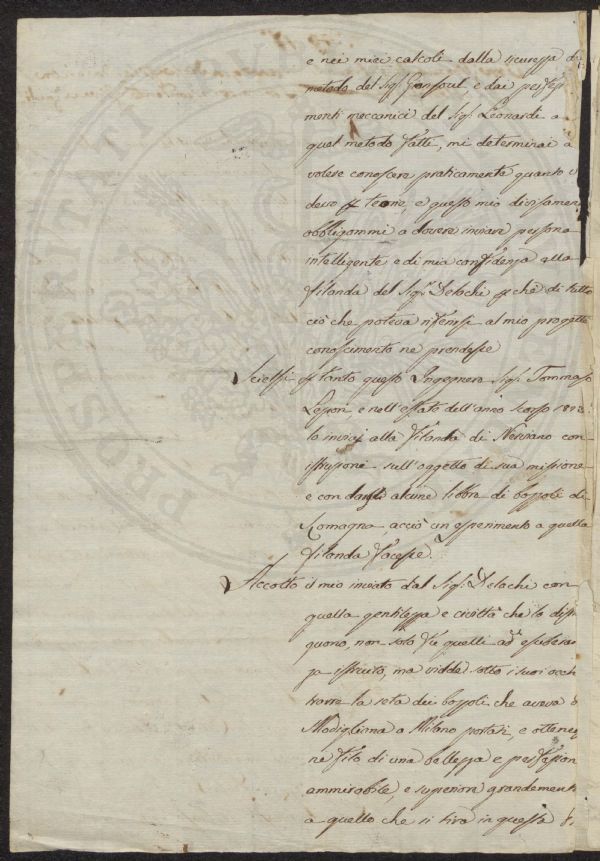 e nei miei calcoli dalla sicurezza di
metodo del Sig.r Gensoul, e dai perfezi
menti meccanici del Sig.r Leonardi a
quel metodo fatti, mi determinai a
volere conoscere praticamente quanto
devo teorie, e questo mio
obbligommi a dovere inviare persona
intelligente e di mia confidenza alla
filanda del Sig.r Delachi pchè di tutto
ciò che poteva riferirsi al mio progetto
conoscimento ne prendesse
Scielsi p tanto questo Ingegnere Sig.r Tommaso
Legori e nell'estate dell'anno scorso
lo inviai alla filanda di Nerviano con
istruzioni sull'oggetto di sua missione
e con dargli alcune libbre di bozzoli di
Romagna, acciò un esperimento a quella
filanda facesse.
Accolto il mio inviato dal Sig.r Delachi con
quella gentilezza e civiltà che lo disti
guono, non solo fù quelli ad esuberan
za istruito, ma vidde sotto i suoi occhi
trarre la seta dei bozzoli che aveva
Modigliana a Milano portati, e ottene
ne filo di una bellezza e perfezion
ammirabile, e superiore grandement
a quello che si tira in questa
PROSPERITÀ